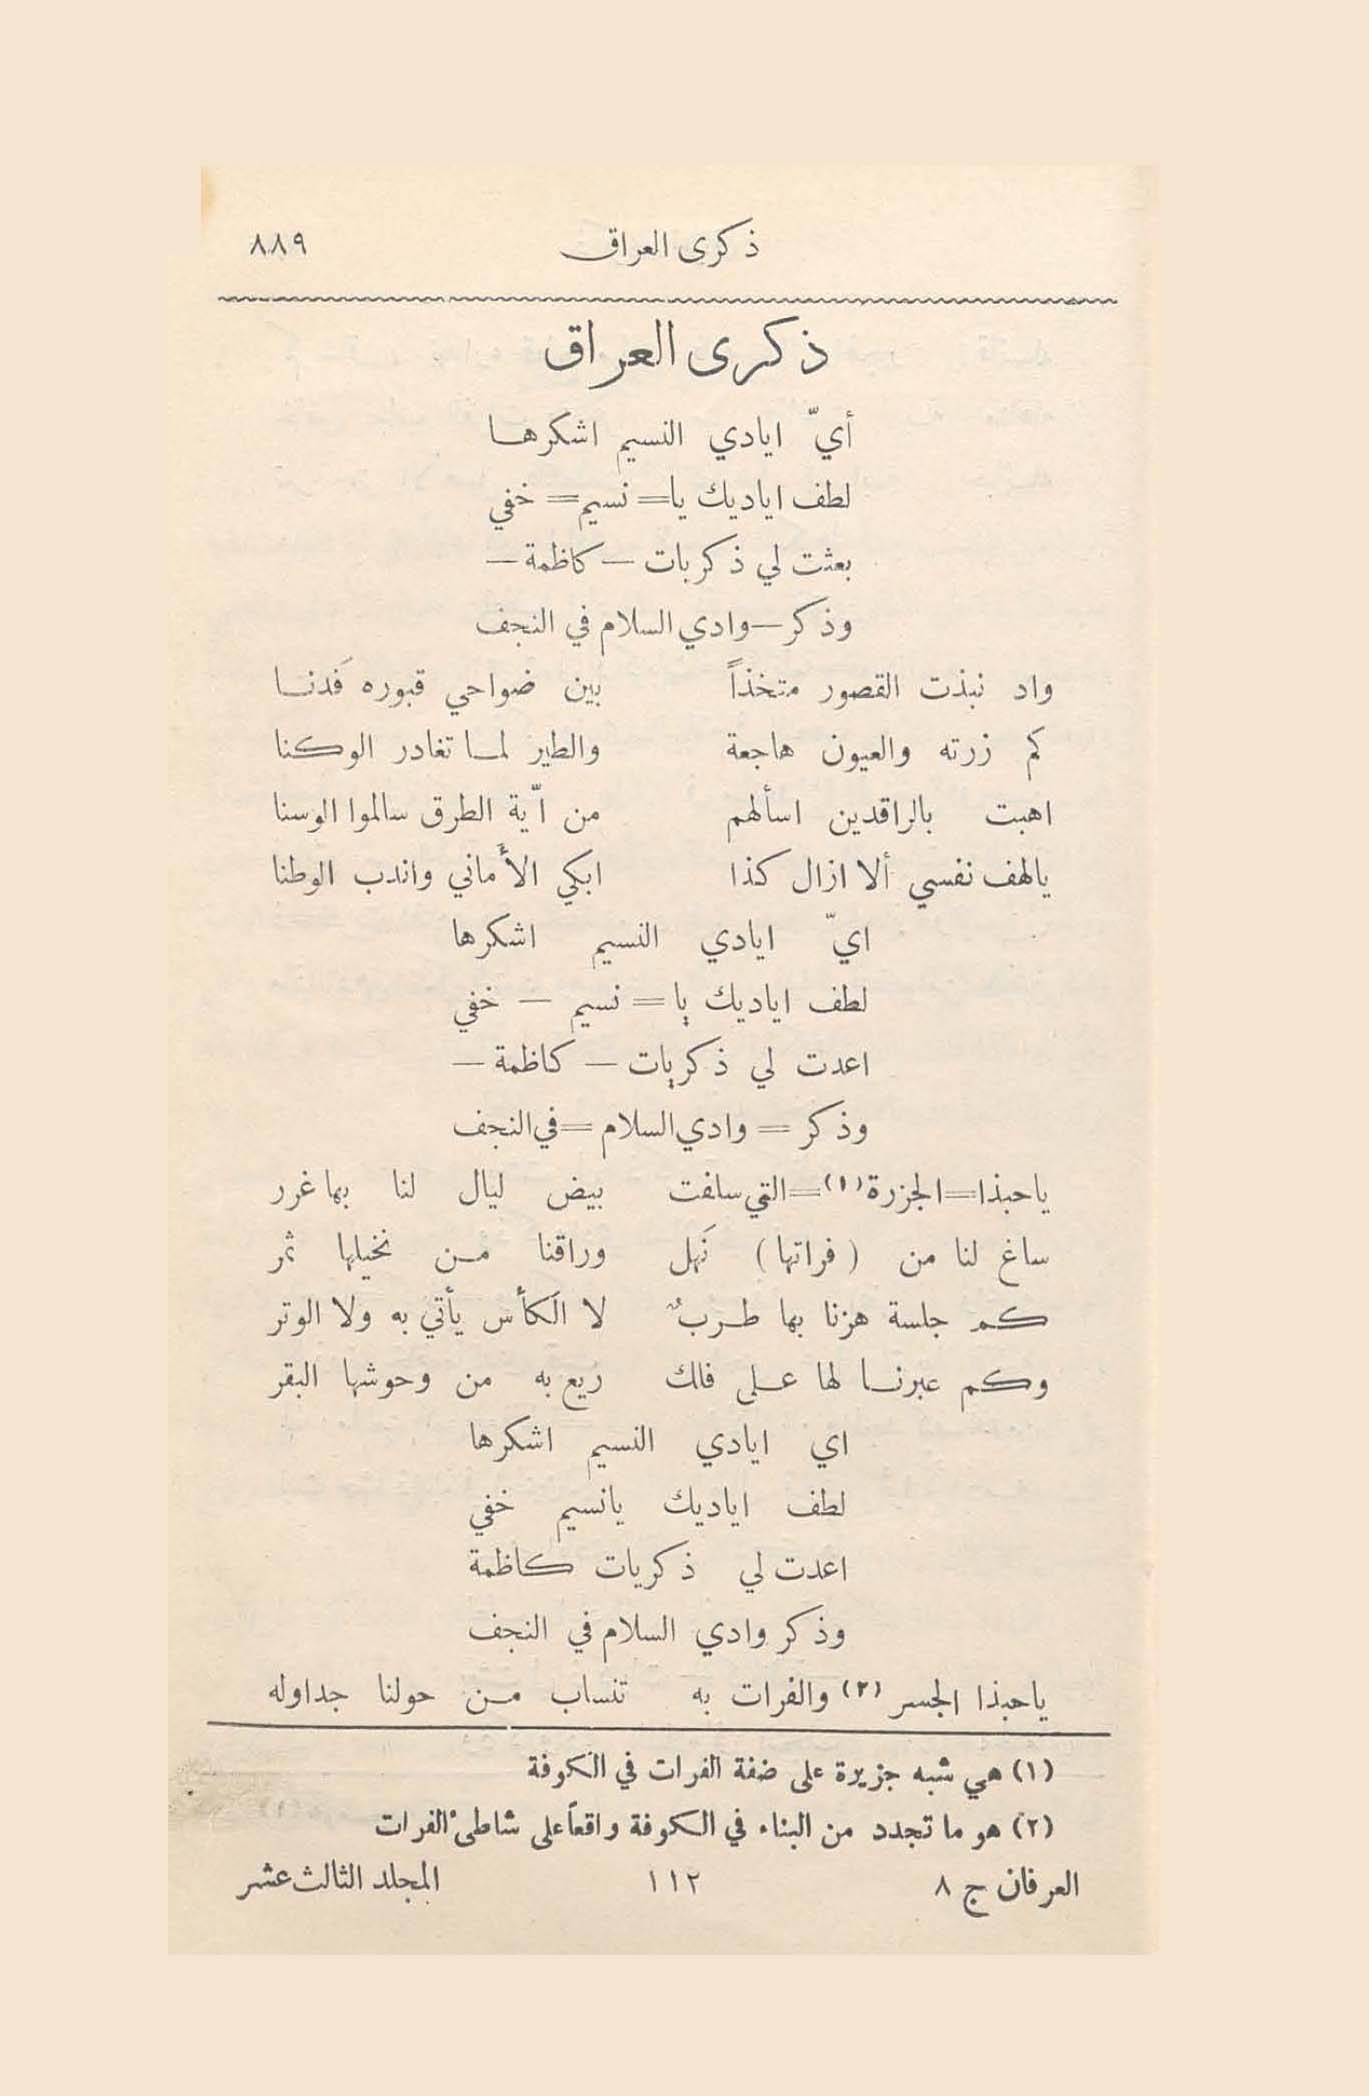 ذكرى العراق ٨٨٩
ذكرى العراق
أيّ ايادي النسيم اشكرها
لطف اياديك يا= نسيم= خفي
بعثت لي ذكريات – كاظمة –
وذكر – وادي السلام في النجف
واد نبذت القصور متخذاً بين ضواحي قبوره فَدنا
كم زرته والعيون هاجعة والطير لما تغادر الوكنا
اهبت بالراقدين اسألهم من ايّة الطرق سالموا الوسنا
يالهف نفسي ألا ازال كذا ابكي الأَماني واندب الوطنا
ايّ ايادي النسيم اشكرها
لطف اياديك يا= نسيم – خفي
اعدت لي ذكريات – كاظمة –
وذكر = وادي السلام = في النجف
ياحبذا= الجزرة (١) =التي سلفت بيض ليال لنا بها غرر
ساغ لنا من (فراتها) نَهل وراقنا من نخيلها ثمر
كم جلسة هزنا بها طربٌ لا الكأس يأتي به ولا الوتر
وكم عبرنا لها على فلك ريع به من وحوشها البقر
اي ايادي النسيم اشكرها
لطف اياديك يانسيم خفي
اعدت لي ذكريات كاظمة
وذكر وادي السلام في النجف
ياحبذا الجسر (٢) والفرات به تنساب من حولنا جداوله
(١) هي شبه جزيرة على ضفة الفرات في الكوفة
(٢) هو ما تجدد من البناء في الكوفة واقعاً على شاطئ الفرات
العرفان ج ٨ ١١٢ المجلد الثالث عشر